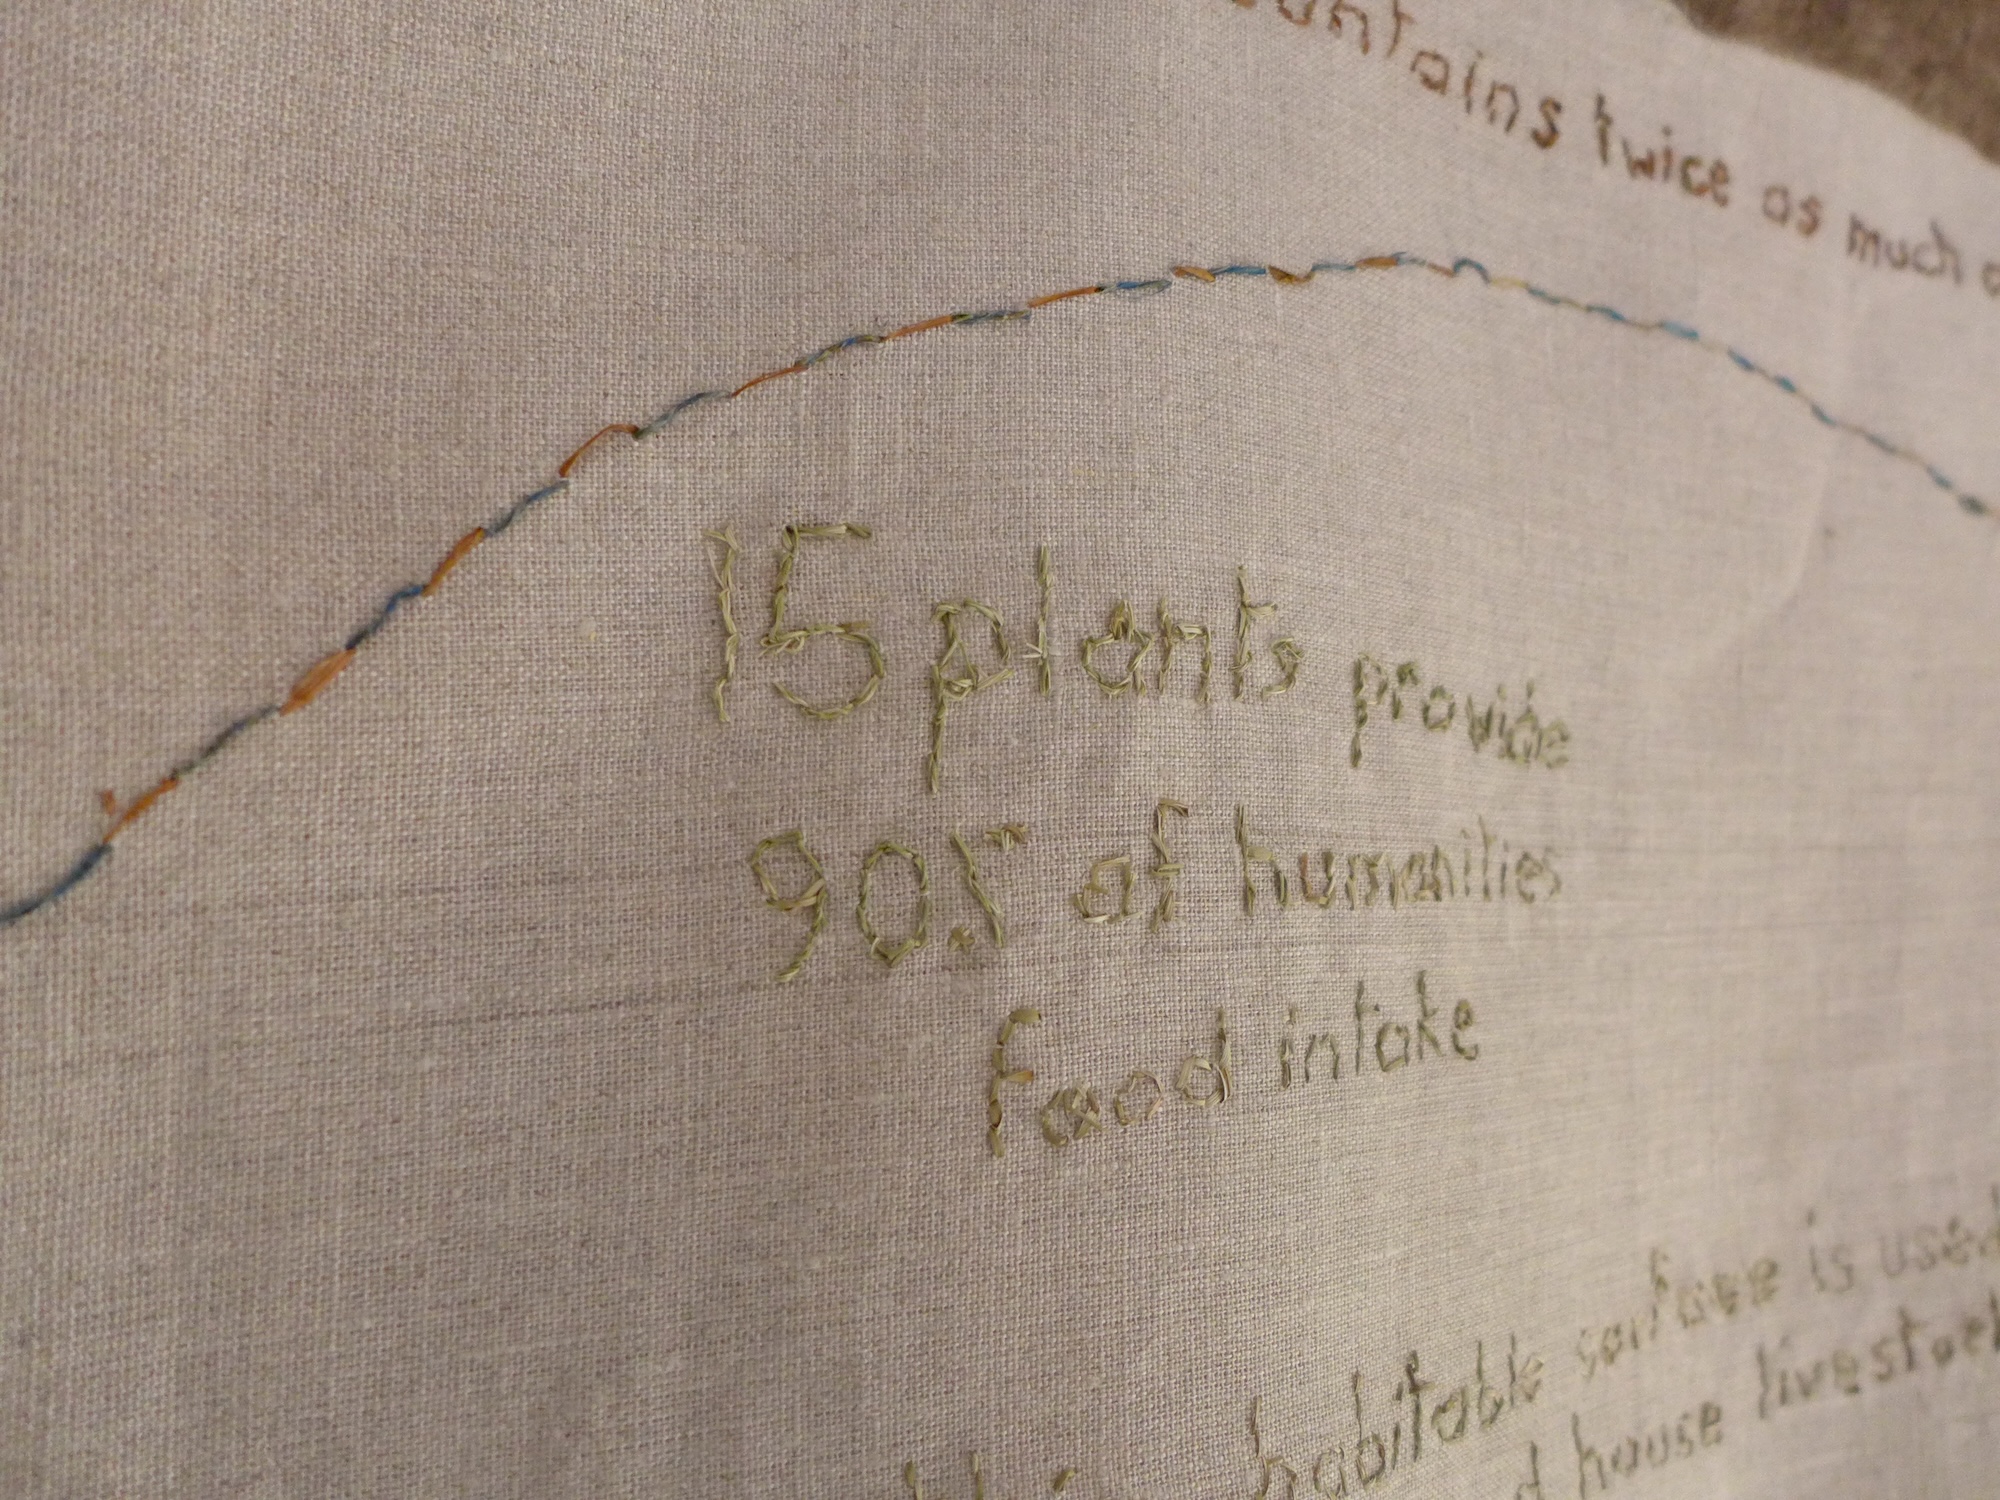 contains twice as much
15 plants provide
90% of humanities
food intake
habitable surface is used
house livestock